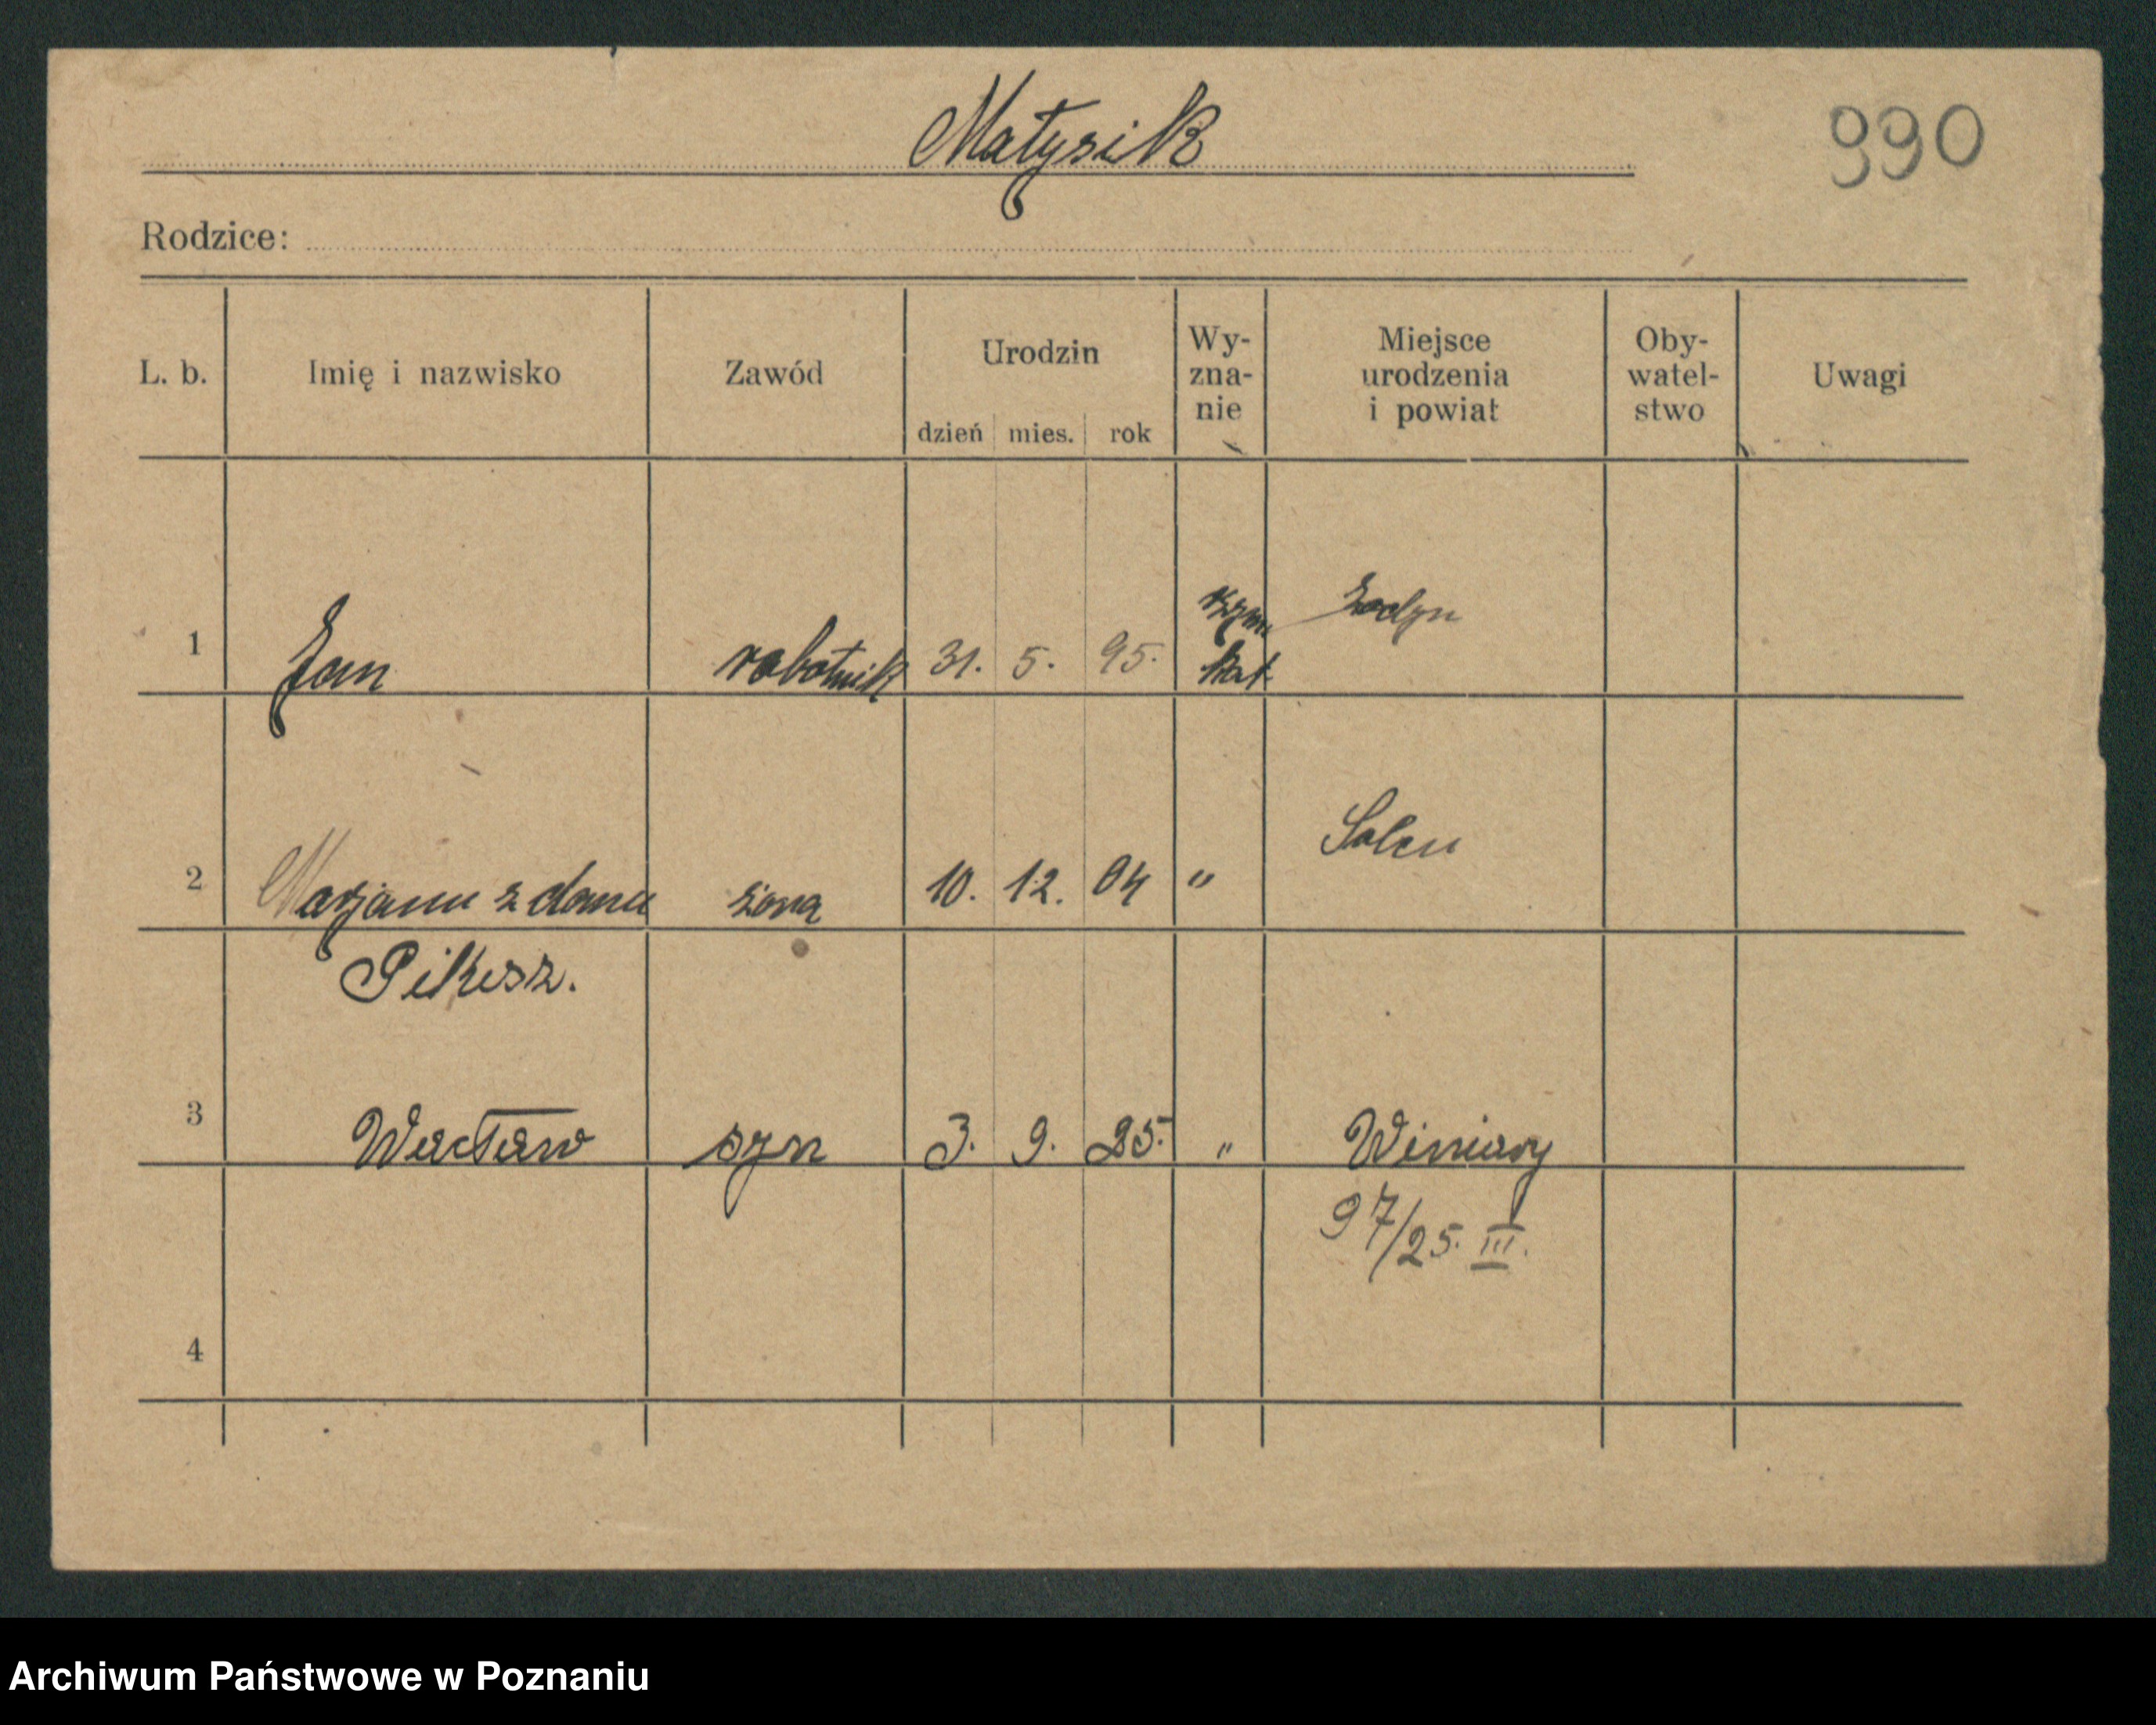 Matysik
990
Rodzice:
L. b. Imię i nazwisko Zawód Urodzin dzień mies. rok Wy-zna-nie Miejsce urodzenia i powiat Oby-watel-stwo Uwagi
1 Jan robotnik 31. 5. 95. rzym kat
2 Marjanna z domu żona 10. 12. 04 " Solen
3 Wacław syn 3. 9. 25. " Winiary
97/25. III.
4
Archiwum Państwowe w Poznaniu